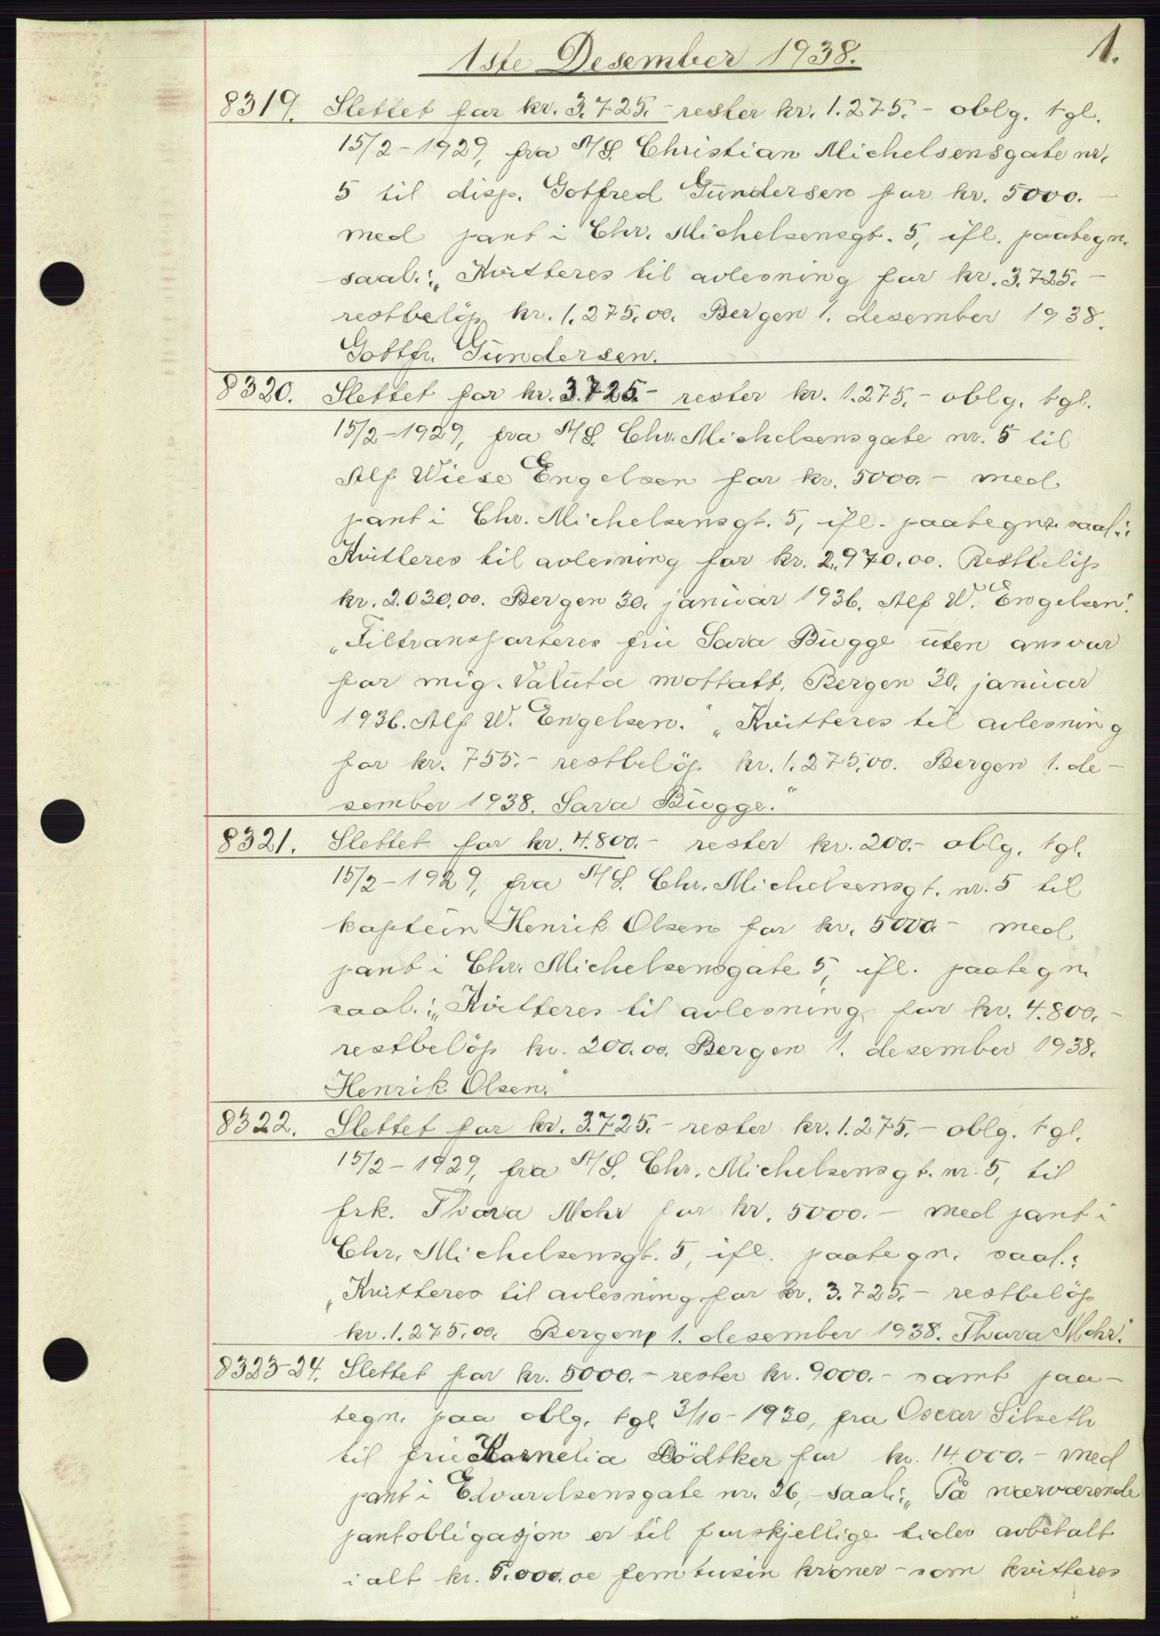 1.
1ste Desember 1938.
8319. Slettet for kr. 3.725.- rester kr. 1.275.- oblg. tgl.
15/2-1929, fra A/S. Christian Michelsensgate nr.
5 til disp. Gotfred Gundersen for kr. 5000.-
med pant i Chr. Michelsensgt. 5, ifl. paategn.
saal.: „Kvitteres til avlesning for kr. 3.725.-
restbeløp kr. 1.275,00. Bergen 1. desember 1938.
Gottfr. Gundersen.
8320. Slettet for kr. 3.725.- rester kr. 1.275.- oblg. tgl.
15/2-1929, fra A/S. Chr. Michelsensgate nr. 5 til
Alf Wiese Engelsen for kr. 5000.- med
pant i Chr. Michelsensgt. 5, ifl. paategn. saal.:
Kvitteres til avlesning for kr. 2.970.00. Restbeløp
kr. 2.030,00. Bergen 30. januar 1936. Alf W. Engelsen".
„Tiltransporteres fru Sara Bugge uten ansvar
for mig. Valuta mottatt. Bergen 30. januar
1936. Alf W. Engelsen." „Kvitteres til avlesning
for kr. 755.- restbeløp kr. 1.275,00. Bergen 1. de-
sember 1938. Sara Bugge."
8321. Slettet for kr. 4.800.- rester kr. 200.- oblg. tgl.
15/2-1929, fra A/S. Chr. Michelsensgt. nr. 5 til
kaptein Henrik Olsen for kr. 5000.- med
pant i Chr. Michelsensgate 5, ifl. paategn.
saal.: „Kvitteres til avlesning for kr. 4.800.-
restbeløp kr. 200.00. Bergen 1. desember 1938.
Henrik Olsen."
8322. Slettet for kr. 3.725.- rester kr. 1.275.- oblg. tgl.
15/2-1929, fra A/S. Chr. Michelsensgt. nr. 5, til
frk. Thora Mohr for kr. 5000.- med pant i
Chr. Michelsensgt. 5, ifl. paategn. saal.:
„Kvitteres til avlesning for kr. 3.725.- restbeløp
kr. 1.275,00. Bergen, 1. desember 1938. Thora Mohr."
8323-24. Slettet for kr. 5000.- rester kr. 9000.- samt paa-
tegn. paa oblg. tgl. 3/10-1930, fra Oscar Silseth
til fru Kornelia Bödtker for kr. 14000.- med
pant i Edvardsensgate nr. 26, saal.: „På nærværende
pantobligasjon er til forskjellige tider avbetalt
i alt kr. 5.000.00 fem tusin kroner - som kvitteres